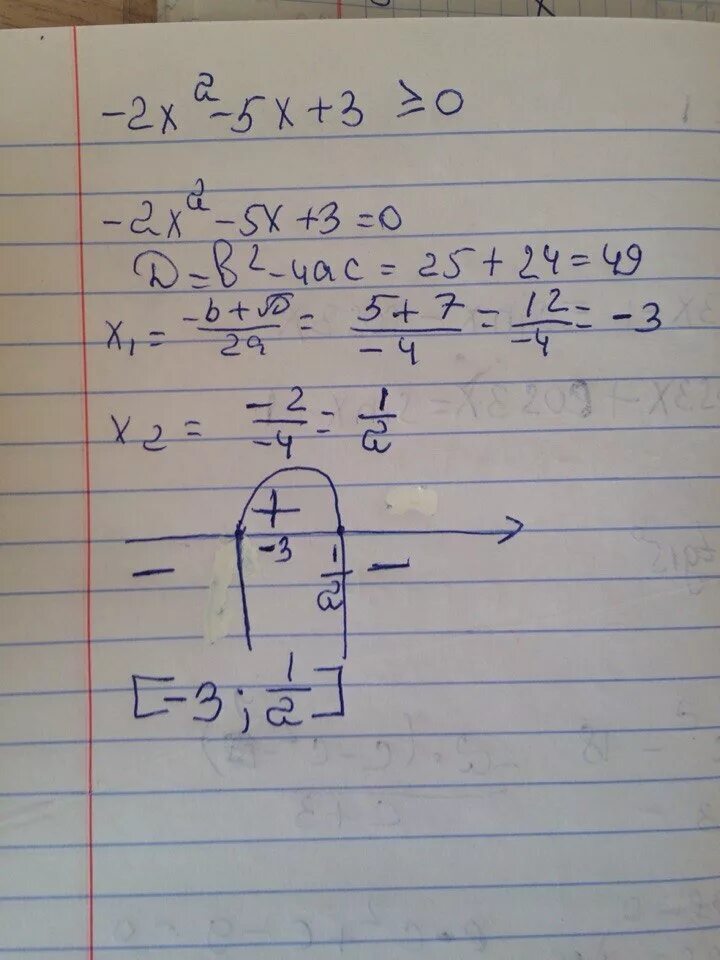 -2x² - 5x + 3 ≥ 0
-2x² - 5x + 3 = 0
D = b² - 4ac = 25 + 24 = 49
x₁ = (-b + √D)/2a = (5 + 7)/-4 = 12/-4 = -3
x₂ = -2/-4 = 1/2
+
- -3 1/2 -
[-3; 1/2]